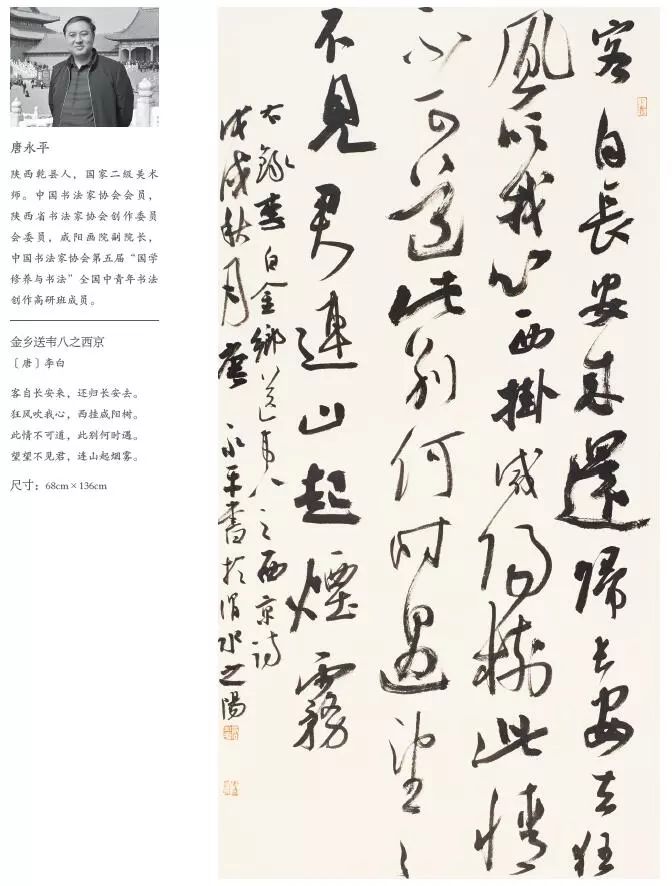 唐永平
陕西乾县人，国家二级美术
师。中国书法家协会会员，
陕西省书法家协会创作委员
会委员，咸阳画院副院长，
中国书法家协会第五届“国学
修养与书法”全国中青年书法
创作高研班成员。
金乡送韦八之西京
［唐］李白
客自长安来，还归长安去。
狂风吹我心，西挂咸阳树。
此情不可道，此别何时遇。
望望不见君，连山起烟雾。
尺寸：68cm×136cm
客自長安来還歸長安去狂
風吹我心西掛咸陽樹此情
不可道此別何時遇望〻
不見君連山起煙霧
右錄李白金鄉送韋八之西京詩
戊戌秋月唐永平書於渭水之陽